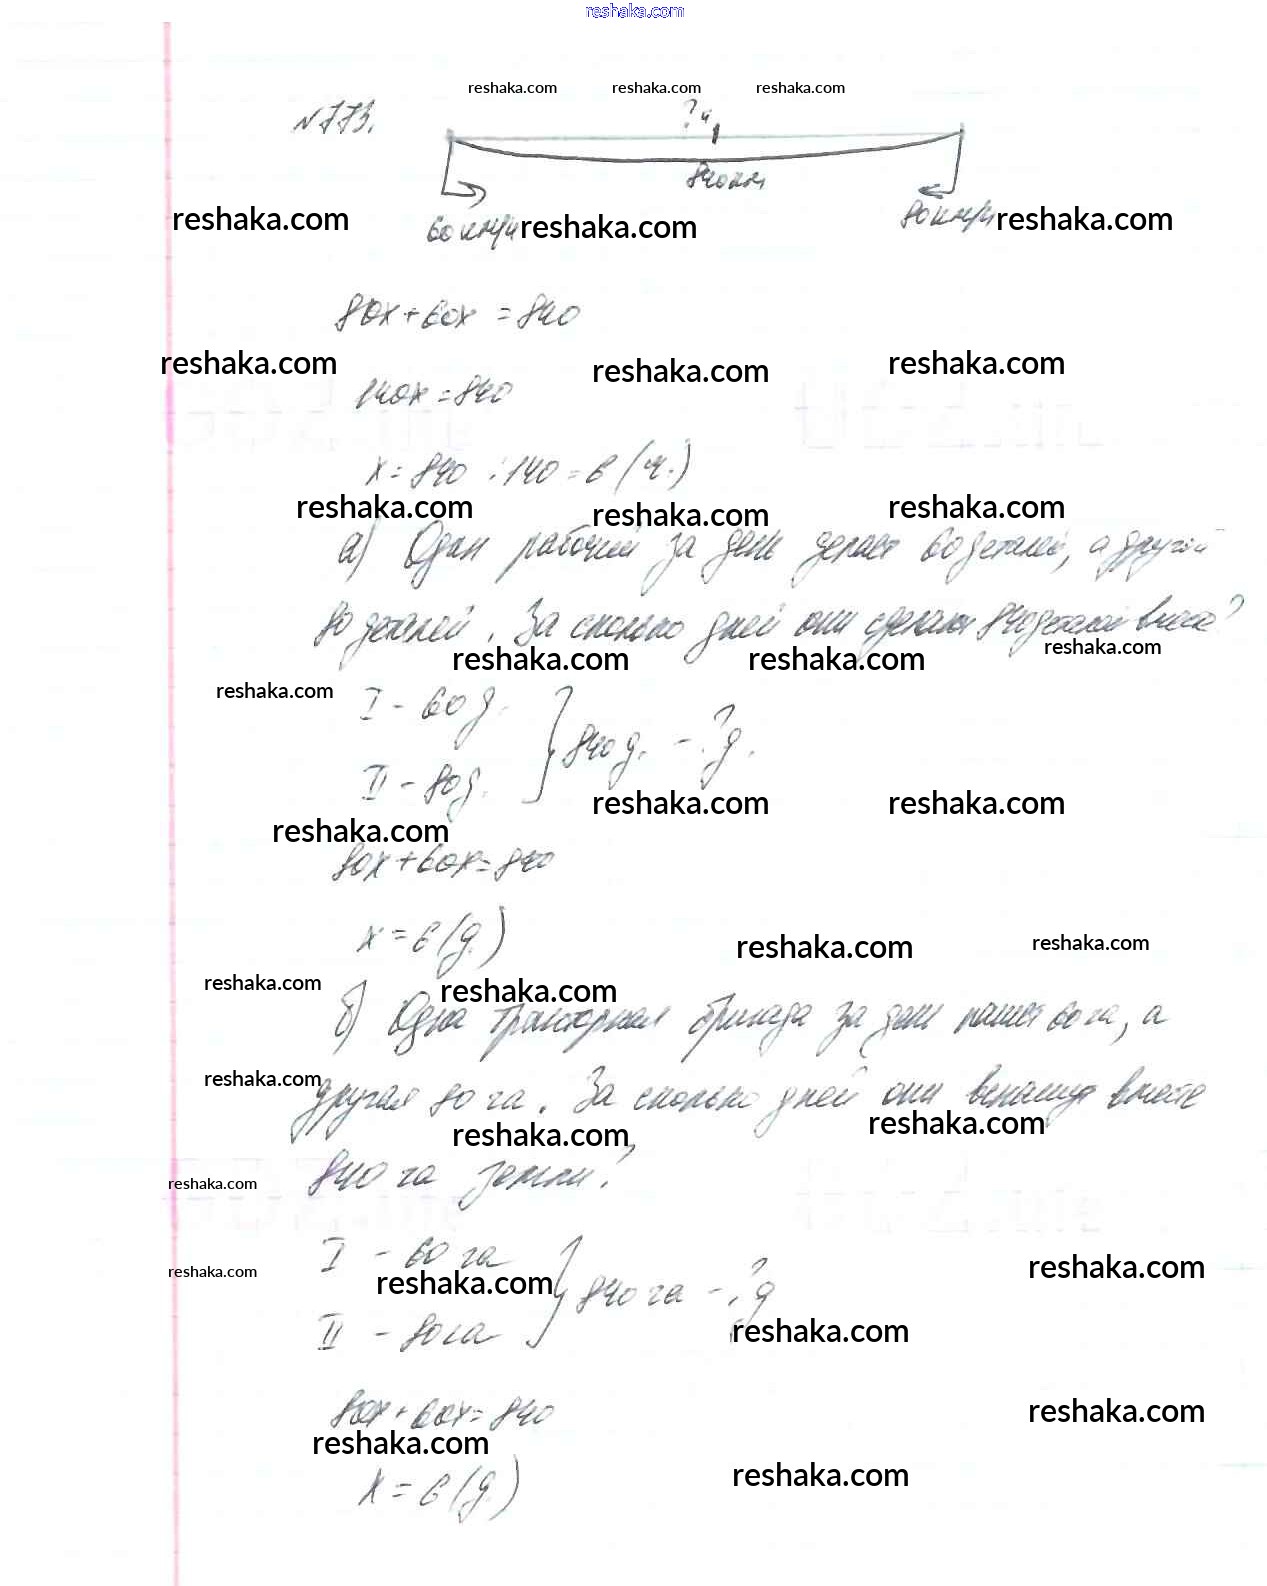 reshaka.com
reshaka.com reshaka.com reshaka.com
№773.
? ч
840 км
60 км/ч 80 км/ч
reshaka.com reshaka.com reshaka.com
80x + 60x = 840
reshaka.com reshaka.com reshaka.com
140x = 840
x = 840 : 140 = 6 (ч.)
reshaka.com reshaka.com reshaka.com
а) Один рабочий за день делает 60 деталей, а другой
80 деталей. За сколько дней они сделают 840 деталей вместе?
reshaka.com reshaka.com reshaka.com
reshaka.com
I - 60 д.
} 840 д. - ? д.
II - 80 д.
reshaka.com reshaka.com
reshaka.com
80x + 60x = 840
x = 6 (д.)
reshaka.com reshaka.com
reshaka.com reshaka.com
б) Одна тракторная бригада за день пашет 60 га, а
reshaka.com
другая 80 га. За сколько дней они вспашут вместе
reshaka.com reshaka.com
840 га земли?
reshaka.com
I - 60 га
reshaka.com reshaka.com reshaka.com
} 840 га - ? д
II - 80 га
reshaka.com
80x + 60x = 840
reshaka.com
reshaka.com
x = 6 (д.)
reshaka.com